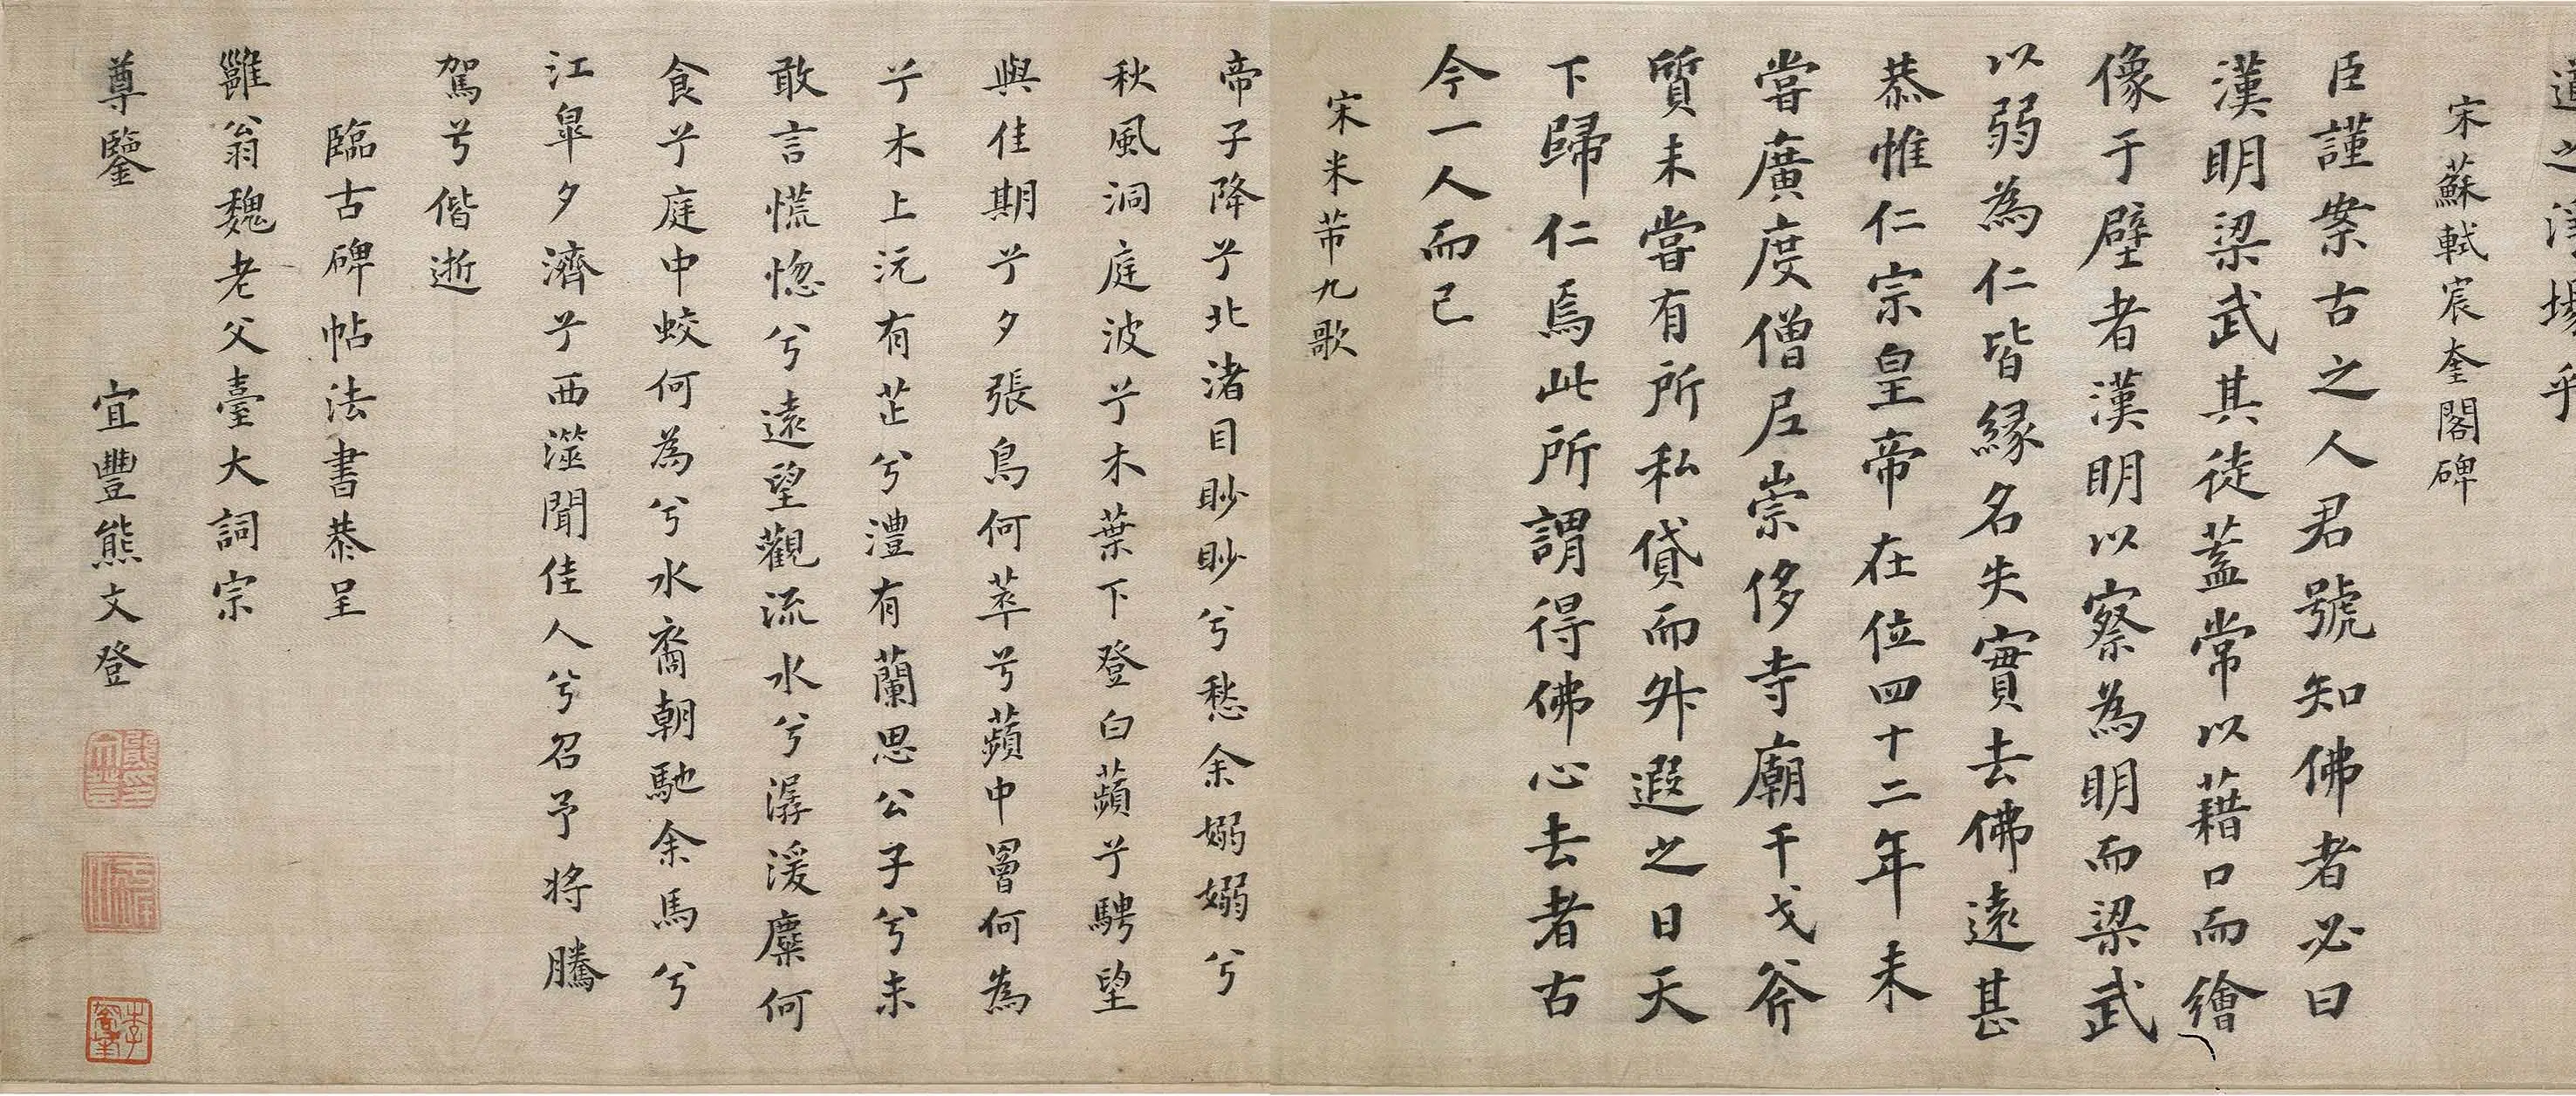 道之津場乎
宋蘇軾宸奎閣碑
臣謹案古之人君號知佛者必曰
漢明梁武其徒蓋常以藉口而繪
像于壁者漢明以察為明而梁武
以弱為仁皆緣名失實去佛遠甚
恭惟仁宗皇帝在位四十二年未
嘗廣度僧尼崇侈寺廟干戈斧
質未嘗有所私貸而外遐之日天
下歸仁焉此所謂得佛心去者古
今一人而已
宋米芾九歌
帝子降兮北渚目眇眇兮愁余嫋嫋兮
秋風洞庭波兮木葉下登白蘋兮騁望
與佳期兮夕張鳥何萃兮蘋中罾何為
兮木上沅有芷兮澧有蘭思公子兮未
敢言慌惚兮遠望觀流水兮潺湲麋何
食兮庭中蛟何為兮水裔朝馳余馬兮
江皐夕濟兮西澨聞佳人兮召予將騰
駕兮偕逝
臨古碑帖法書恭呈
雝翁魏老父臺大詞宗
尊鑒 宜豐熊文登